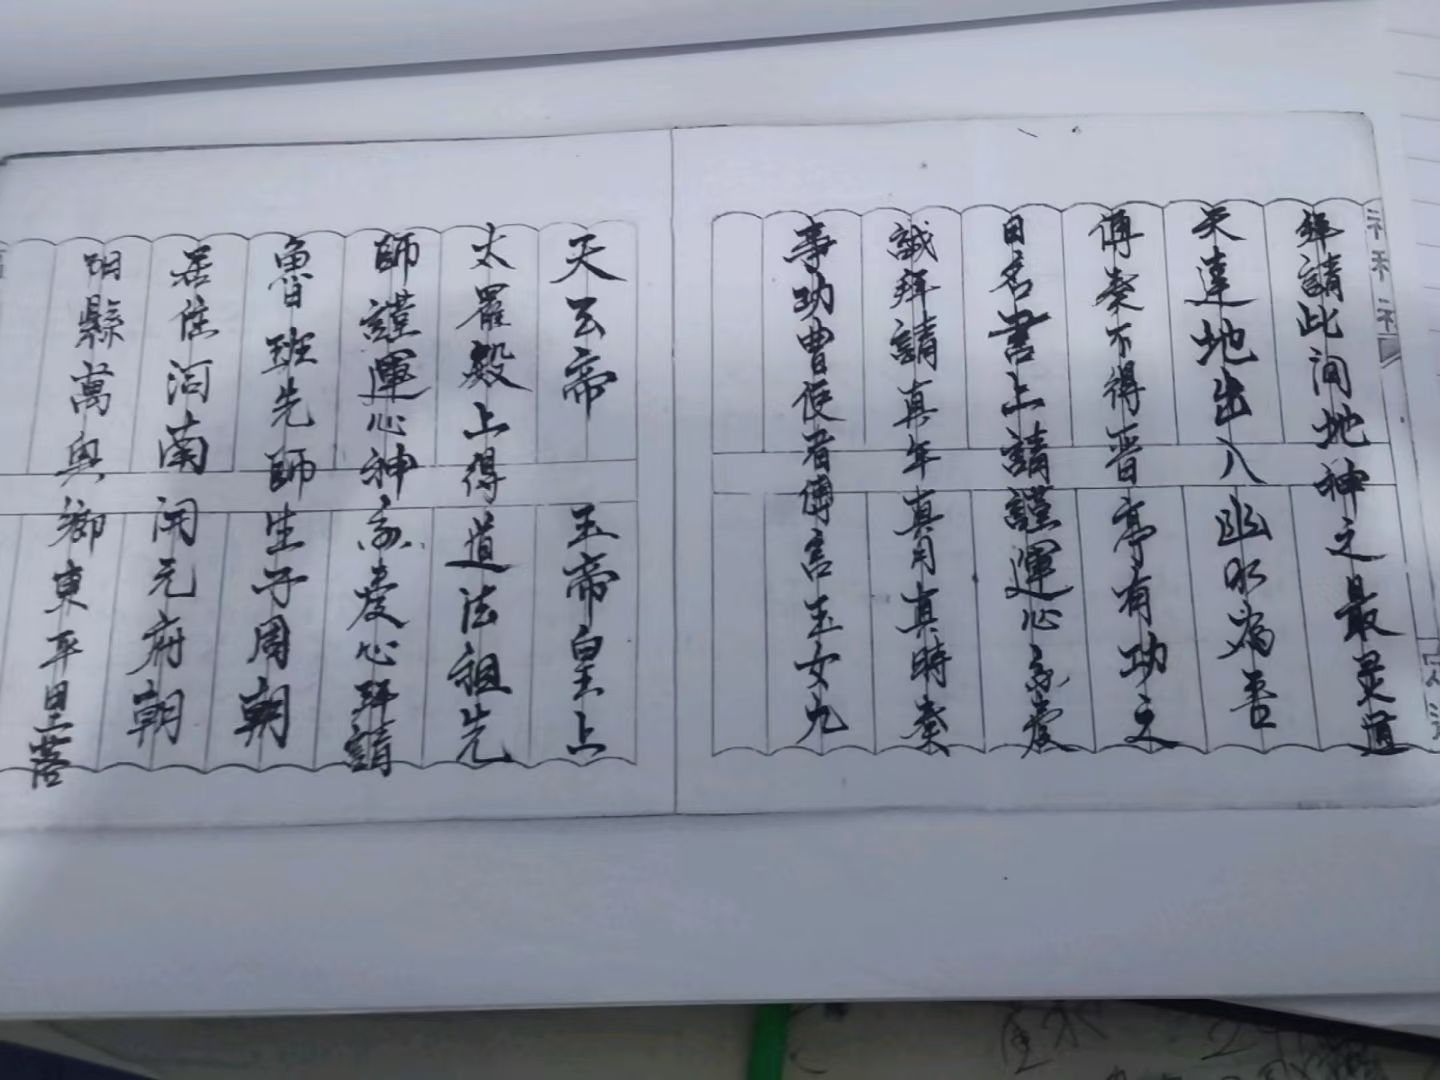 拜請此间地神之最灵道
天達地出入幽冥為吾
傳奏不得晋亭有功之
日名書上請謹運心
誠拜請真年真月真時奏
事功曹使者傳言玉女九
天云帝 玉帝皇上
太羅殿上得道法祖先
師謹運心神 心拜請
魯班先師生于周朝
居住河南開元府朝
明縣萬興鄉東平里